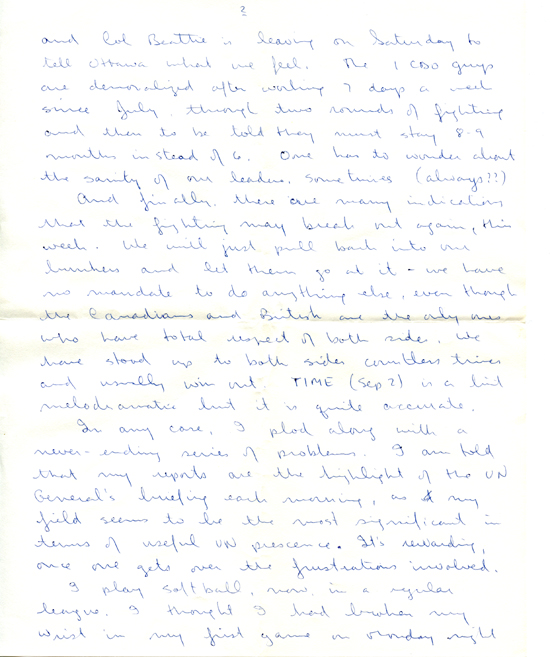 2
and Col Beattie is leaving on Saturday to
tell Ottawa what we feel. The 1 CDO guys
are demoralized after working 7 days a week
since July, through two rounds of fighting
and then to be told they must stay 8-9
months in stead of 6. One has to wonder about
the sanity of our leaders, sometimes (always!!)
And finally, there are many indications
that the fighting may break out again, this
week. We will just pull back into our
bunkers and let them go at it - we have
no mandate to do anything else, even though
the Canadians and British are the only ones
who have total respect of both sides. We
have stood up to both sides countless times
and usually win out. TIME (Sep 2) is a bit
melodramatic but it is quite accurate.
In any case, I plod along with a
never-ending series of problems. I am told
that my reports are the highlight of the UN
General's briefing each morning, as my
field seems to be the most significant in
terms of useful UN prescence. It's rewarding,
once one gets over the frustrations involved.
I play softball, now, in a regular
league. I thought I had broken my
wrist in my first game on Monday night